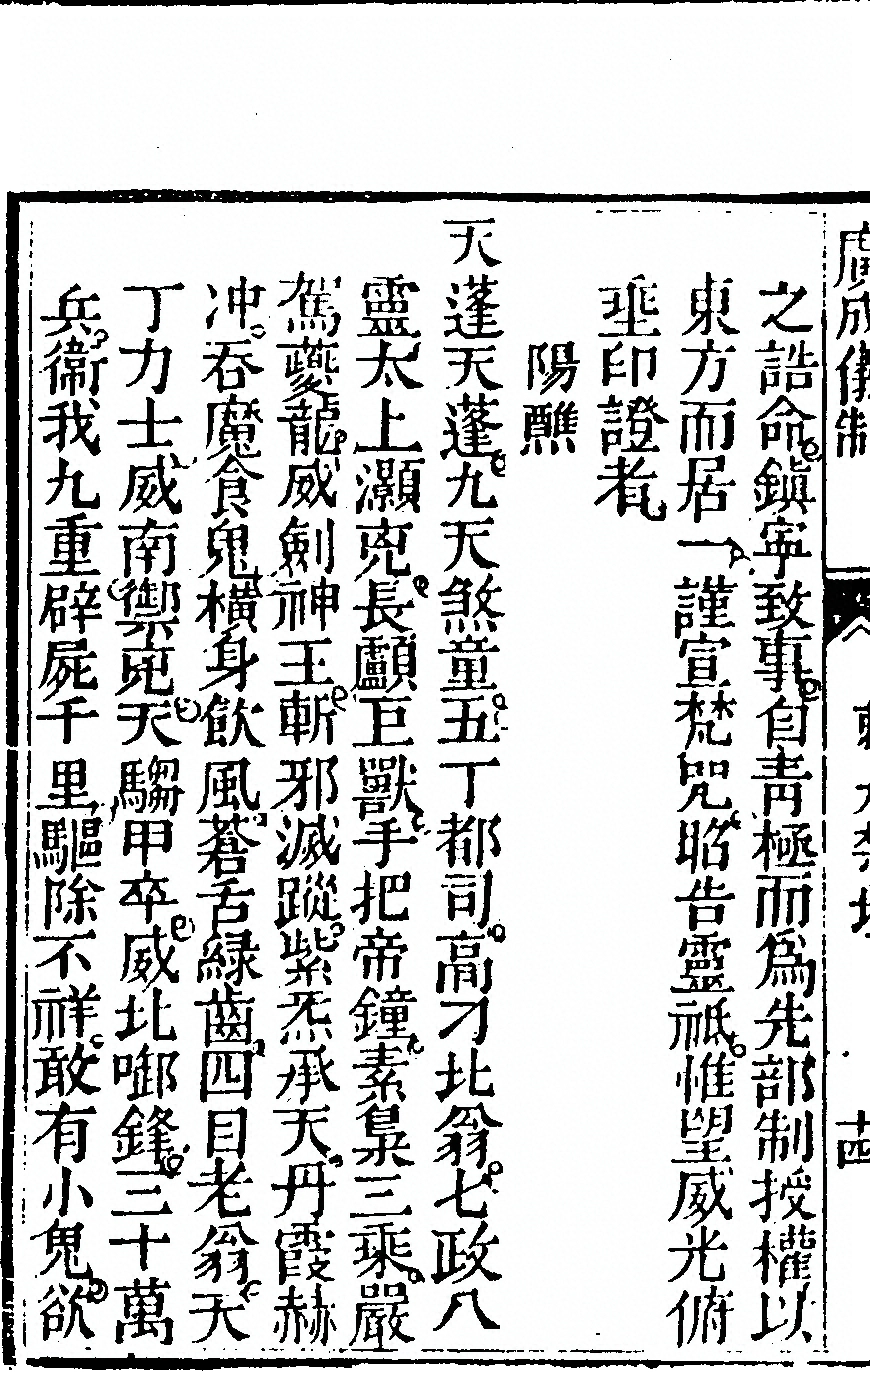 廣成儀制
十四
之誥命鎮寧致事自青極而爲先部制授權以
東方而居一謹宣梵咒昭告靈祇惟望威光俯
垂印證者
陽醮
天蓬天蓬九天煞童五丁都司高刁北翁七政八
靈太上灝兇長顱巨獸手把帝鐘素梟三乘嚴
駕夔龍威劍神王斬邪滅蹤紫炁承天丹霞赫
冲吞魔食鬼橫身飲風蒼舌緑齒四目老翁天
丁力士威南禦兇天騶甲卒威北啣鋒三十萬
兵衛我九重辟屍千里驅除不祥敢有小鬼欲